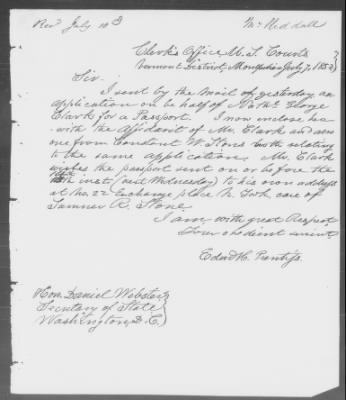 Rec'd July 10th
Mr Reddall
Clerk's Office U. S. Courts
Vermont District, Montpelier July 7, 1852
Sir.
I sent by the mail of yesterday, an
application on behalf of Mr. George
Clark for a Passport. I now enclose
with the Affidavit of Mr. Clark
one from Constant W. Stone both relating
to the same application. Mr. Clark
wishes the passport sent on or before the
inst, (next Wednesday) to his own address
at No. 22 Exchange place N. York, care of
Sumner R. Stone.
I am with great Respect
Your obedient servt,
Edwd H. Prentiss.
Hon. Daniel Webster
Secretary of State
Washington, D. C.